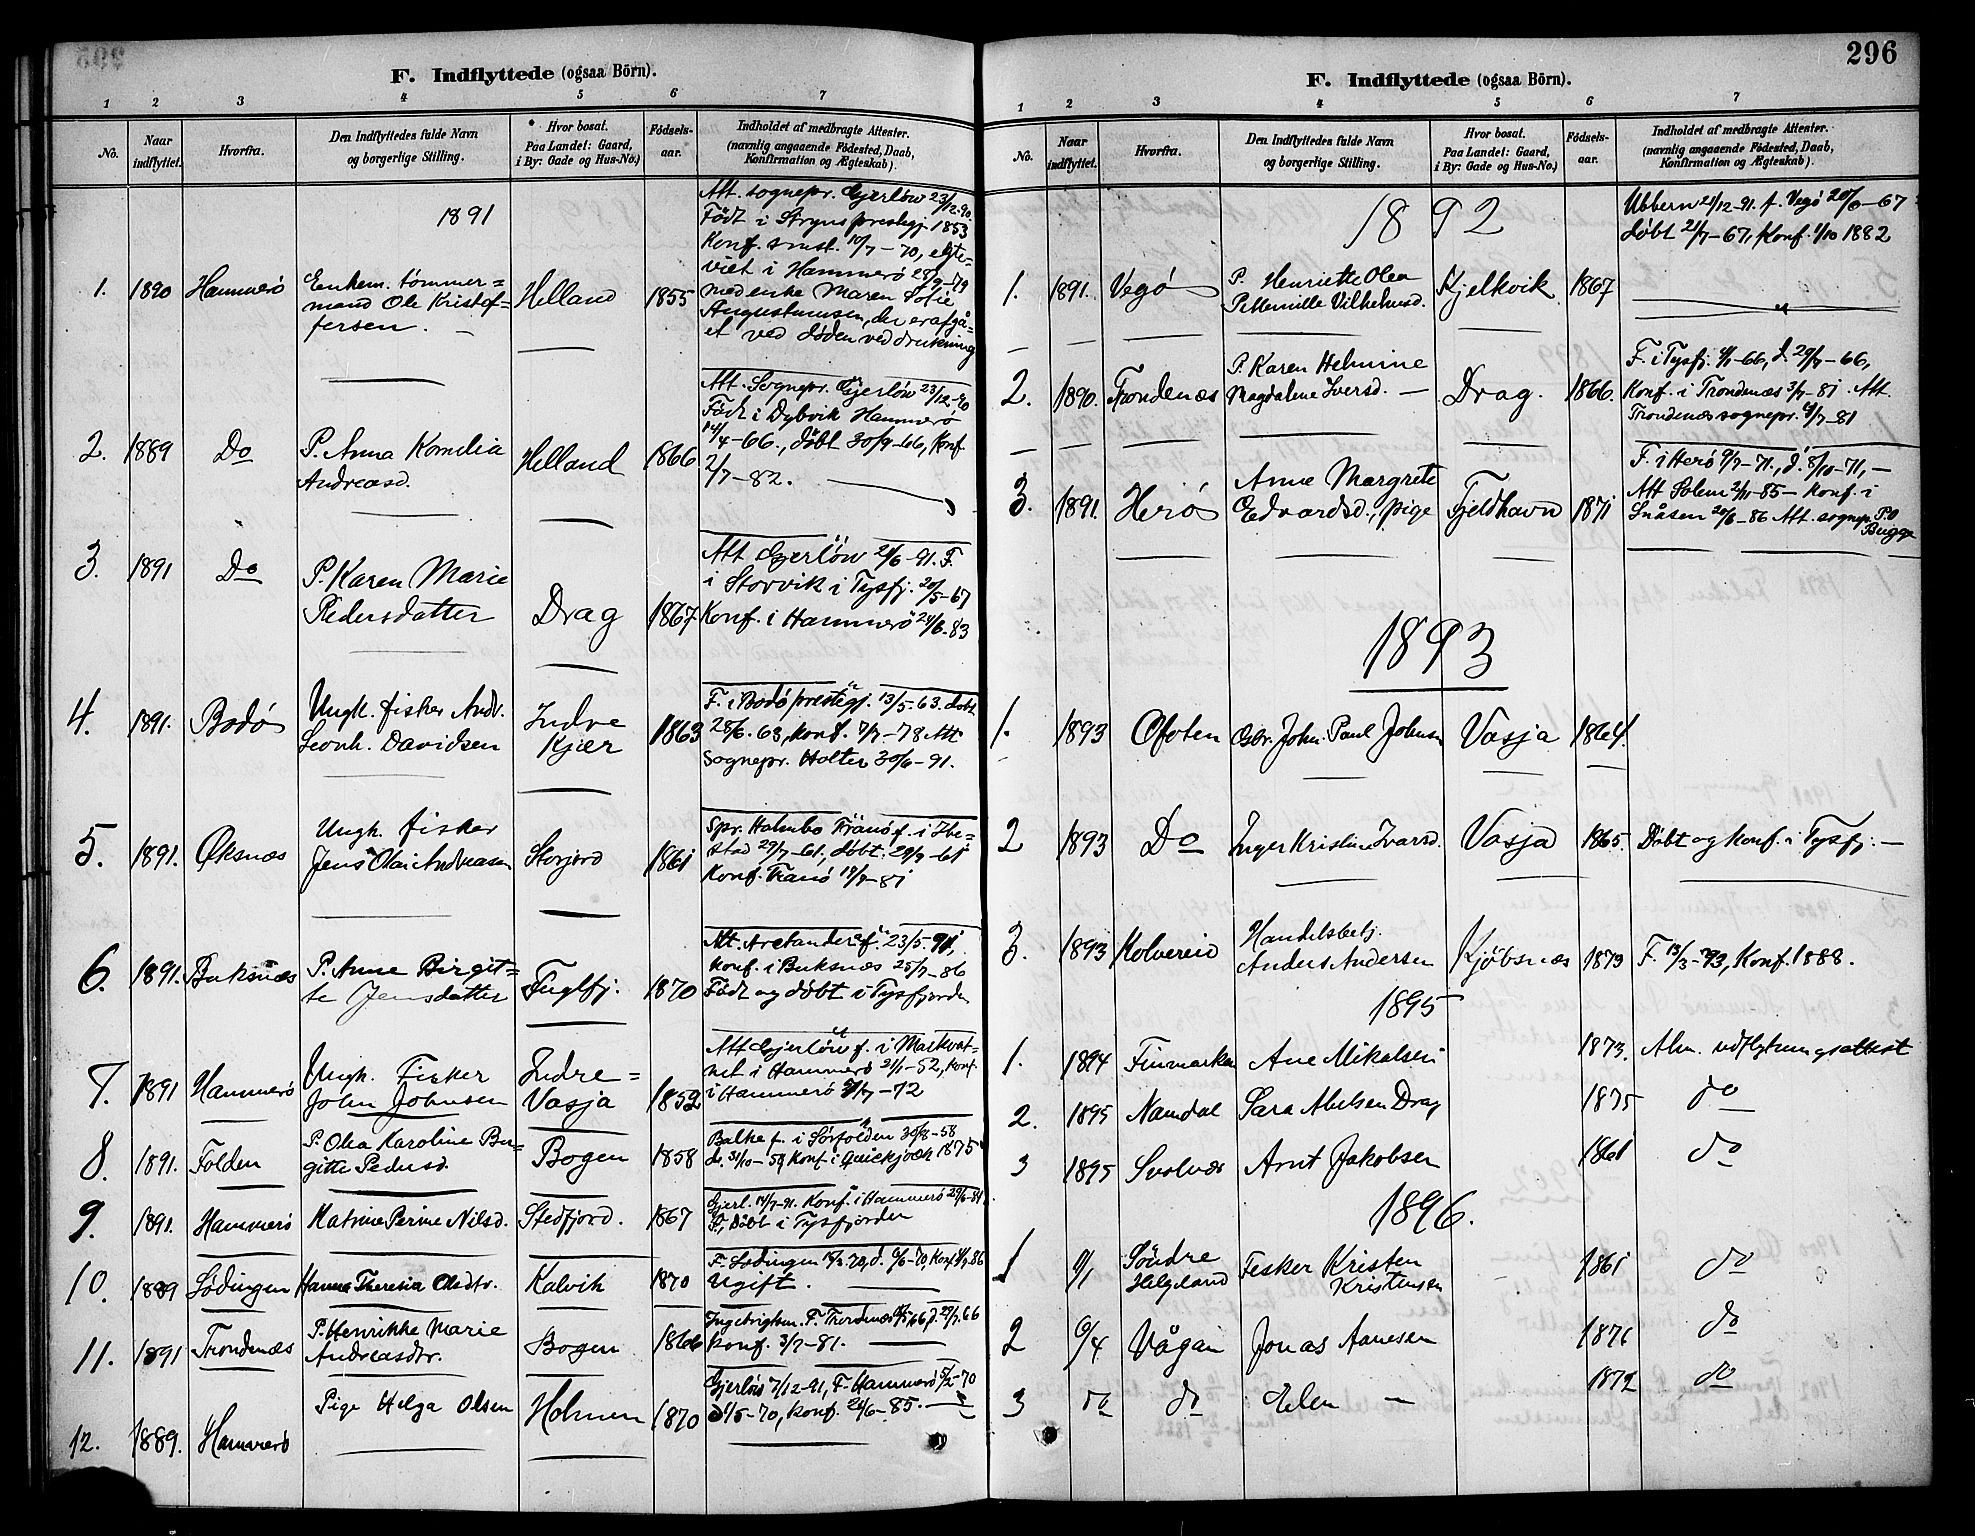 F. Indflyttede (ogsaa Börn).
1 2 3 4 5 6 7
No. Naar indflyttet. Hvorfra. Den Indflyttedes fulde Navn og borgerlige Stilling. Hvor bosat. Paa Landet: Gaard, i By: Gade og Hus-No.) Fødsels-aar. Indholdet af medbragte Attester. (navnlig angaaende Fødested, Daab, Konfirmation og Ægteskab).
1891
1. 1890 Hammerö Enkem. tømmer=
mand Ole Kristof=
fersen. Helland 1855
Att. sognepr. Gjerlöw 23/12-90.
Födt i Stryns prestegj. 1853
Konf. smst. 10/7-70, egte=
viet i Hammerö 28/9-79
med enke Maren Sofie
Augustinusen, der er afgå=
et ved døden ved drukning
2. 1889 Do P. Anna Kornelia
Andreasd. Helland 1866
Att. Sognepr. Gjerlöw 23/12-90
Födt i Dybvik Hammerö
14/4-66., döbt 30/9-66, Konf.
2/7-82.
3. 1891 Do P. Karen Marie
Pedersdatter Drag 1867.
Att Gjerlöw 24/6-91. F.
i Storvik i Tysfj. 20/5-67
Konf. i Hammerö 24/6-83
4. 1891. Bodö Ungk. fisker Andr.
Leonh. Davidsen Indre
Kjær 1863
F. i Bodö prestegj. 13/5-63. döbt
28/6. 63, konf. 7/7-78. Att
Sognepr. Holter 30/6-91.
5. 1891. Øksnæs Ungk. fisker
Jens Olai Andreasen Storjord 1861
Spr. Holmbo Tranö f. i Ibe=
stad 27/7-61., döbt. 29/9-61
Konf. Tranö 19/9-81
6. 1891. Buksnæs P. Anne Birgit=
te Jensdatter Fuglfj. 1870
Att. Arctander f. 23/5.91,
konf. i Buksnæs 25/7-86
Födt og döbt i Tysfjorden
7. 1891 Hammerö Ungk. Fisker
John Johnsen Indre=
Vasja 1852
Att Gjerlöw f. i Markvat=
net i Hammerö 21/1-52, konf.
i Hammerö 7/7-72
8. 1891. Folden P. Olea Karoline Bir=
gitte Pedersd. Bogen 1858
Balke f. i Sørfolden 30/8-58
d. 31/10-58 konf. i Quickjock 1875
9. 1891. Hammerö Katrine Perine Nilsd. Stedfjord. 1867
Gjerl. 14/7-91. Konf. i Hammerö 29/6-84.
F., Döbt i Tysfjorden
10. 1889 Lødingen Hanna Theresia Olsdtr. Kalvik 1870
F. Lødingen 14/3-70, d. 6/6-70, Konf. 86
Ugift.
11. 1891 Trondenæs P. Henrikke Marie
Andreasdtr. Bogen 1866
Ingebrigtsen. F. Trondenæs 66, d. 29/7.66
Konf. 3/7-81.
12. 1889. Hammerö Pige Helga Olsen Holmen 1870
Gjerlöw 7/12-91, F. Hammerö 5/2-70
d 1/5-70, konf. 24/6-85.
296
F. Indflyttede (ogsaa Börn).
1 2 3 4 5 6 7
No. Naar indflyttet. Hvorfra. Den Indflyttedes fulde Navn og borgerlige Stilling. Hvor bosat. Paa Landet: Gaard, i By: Gade og Hus-No.) Fødsels-aar. Indholdet af medbragte Attester. (navnlig angaaende Fødested, Daab, Konfirmation og Ægteskab).
1892
1. 1891. Vegö P. Henriette Olea
Petternille Vilhelmsd. Kjelkvik 1867
21/12-91. f. Vegö 20/6-67
döbt 21/7-67, Konf. 1/10 1882
2. 1890. Trondenæs P. Karen Helmine
Magdalene Iversd. Drag. 1866.
F. i Tysfj. 6/1-66, d. 29/9-66,
Konf. i Trondenæs 3/7-81. Att.
Trondenæs sognepr. 9/7-81
3. 1891. Herö Anne Margrete
Edvardsd., pige Fjeldhavn 1871
F. i Herö 9/7-71., d. 8/10-71,
Att Solem 2/11-85 - konf. i
Snåsen 20/6-86 Att. sognepr. P.O
Bugge
1893
1. 1893 Ofoten Gbr. John Paul Johnsen Vasja 1864.
2 1893 Do Inger Kristine Ivarsd. Vasja 1865. Döbt og konf. i Tysfj.
3. 1893 Kolvereid Handelsbetj.
Anders Andersen Kjöbsnæs 1873 F. 13/3-73, Konf. 1888.
1895
1. 1894 Finmarken Ane Mikalsen 1873. Alm. udflytningsattest
2. 1895 Namdal Sara Abelsen Drag 1875 do
3 1895 Svolvær Arnt Jakobsen 1861 do
1896.
1 9/1 Söndre
Helgeland Fisker Kristen
Kristensen 1861 do
2 9/4 Vågan Jonas Aanesen 1871 do
3 do do Elen — 1872 do